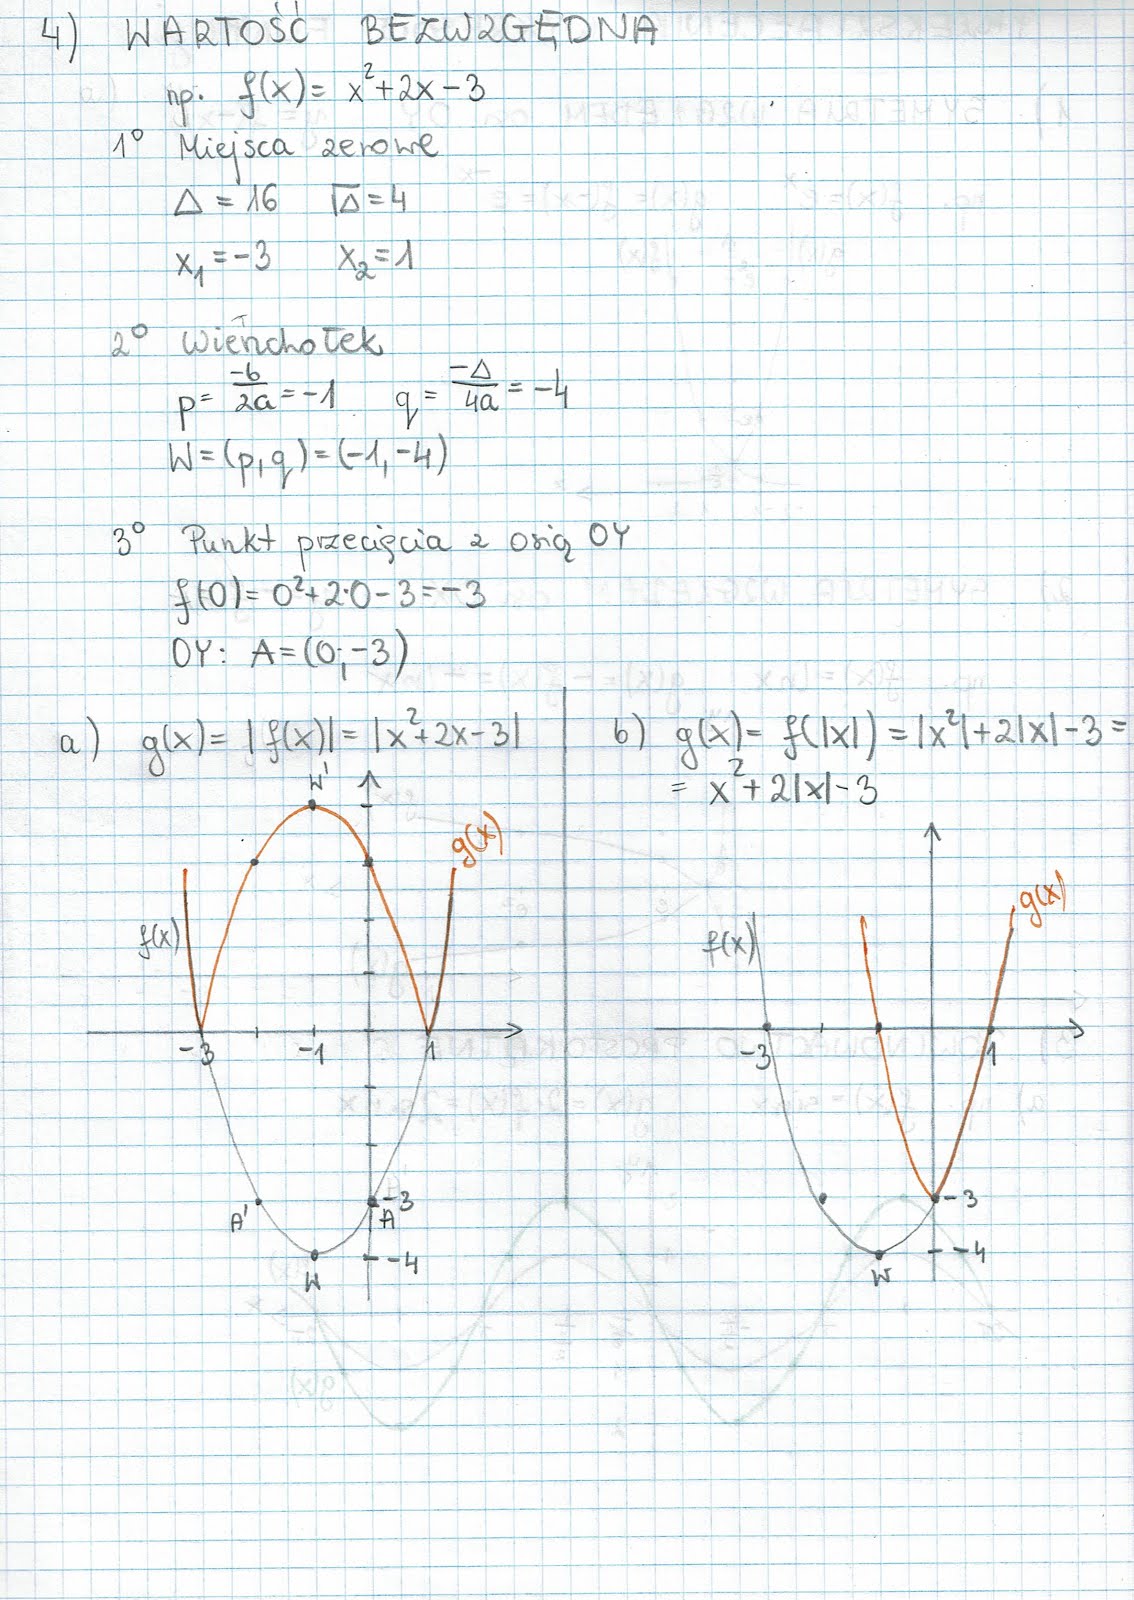 4) WARTOŚĆ BEZWZGLĘDNA
np. f(x) = x²+2x-3
1° Miejsca zerowe
Δ = 16 √Δ = 4
x₁ = -3 x₂ = 1
2° Wierzchołek
p = -b/2a = -1 q = -Δ/4a = -4
W = (p, q) = (-1, -4)
3° Punkt przecięcia z osią OY
f(0) = 0²+2·0-3 = -3
OY: A = (0; -3)
a) g(x) = |f(x)| = |x²+2x-3|
W'
g(x)
f(x)
-3 -1 1
A' A -3
W -4
b) g(x) = f(|x|) = |x²|+2|x|-3 =
= x²+2|x|-3
g(x)
f(x)
-3 1
-3
W -4